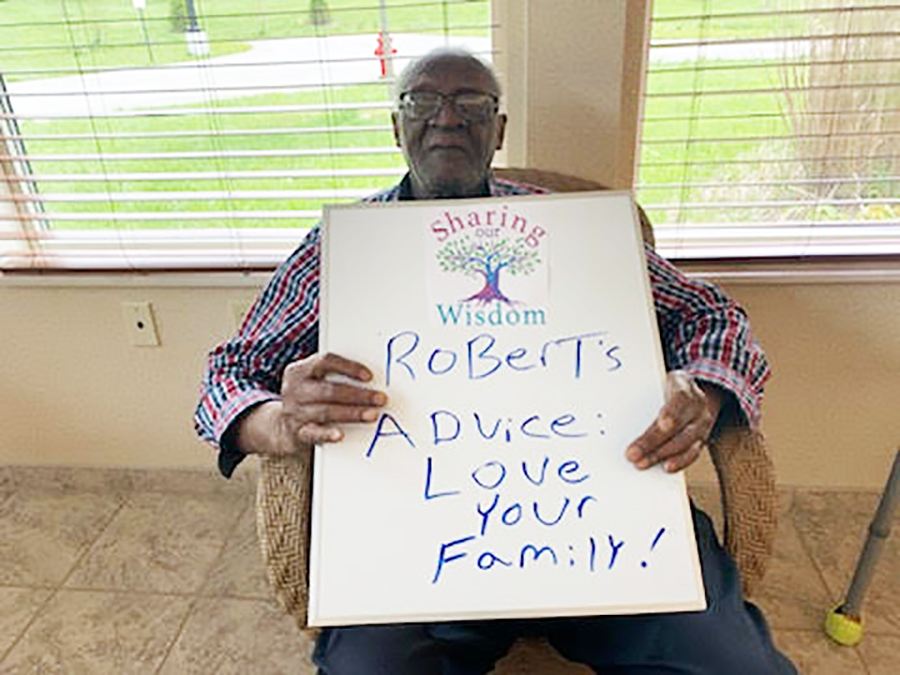 Sharing
our
Wisdom
RoBerT's
ADvice:
Love
Your
Family!